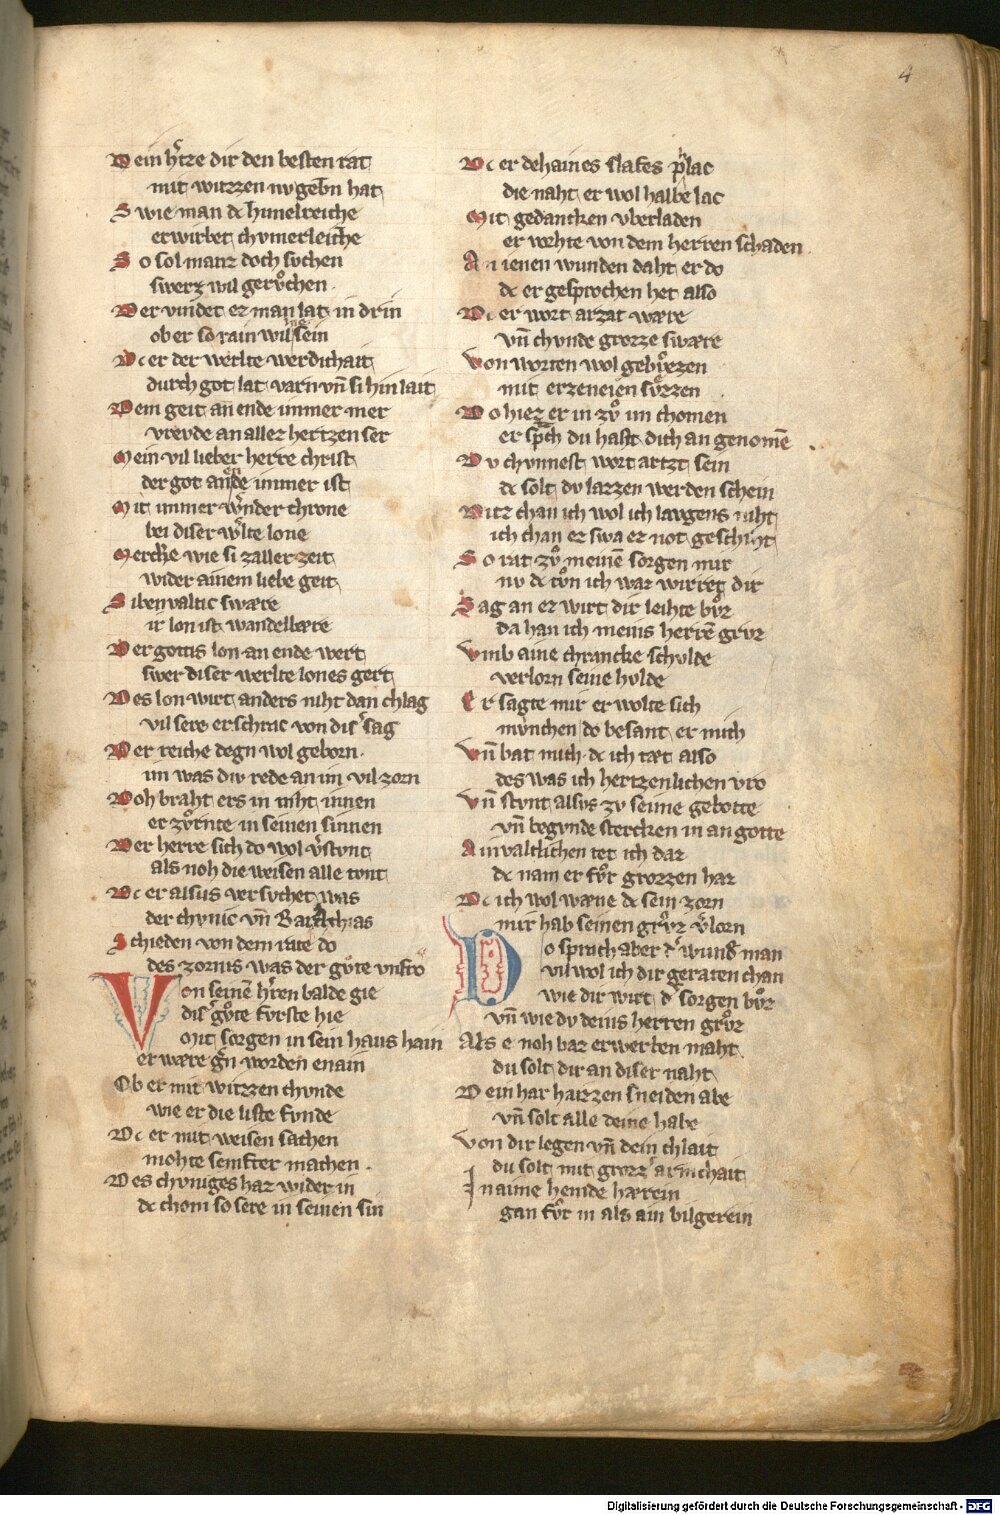 4
Dein hˢtze dir den besten rat
mit witzzen nv gebn hat
Swie man dc himelreiche
erwirbet chvmerleiche
So sol manz doch svchen
swerz wil gervͦchen
Der vindet ez man lat in drin
ob er so rain wil sein
Dc er der werlte werdichait
durch got lat varn vn̄ si hin lait
Dem geit an ende immer mer
vrevde an allez hertzen ser
Mein vil lieber herre christ
der got an ende immer ist
Mit immer wernder chrone
bei diser wˢlte lone
Merche wie si zaller zeit
wider ainem liebe geit
Sibenvaltic swære
ir lon ist wandelbære
Der gottis lon an ende wert
swer diser werlte lones gert
Des lon wirt anders niht dan chlag
vil sere erschrac von disˢ sag
Der reiche degn wol geborn
im was div rede an im vil zorn
Doh braht ers in niht innen
er zvͦrnte in seinen sinnen
Der herre sich do wol vˢstvnt
als noh die weisen alle tvnt
Dc er alsus versvchet was
der chvnic vn̄ Barachias
Schieden von dem rate do
des zornis was der gvͦte vnfro
Von seinē hˢren balde gie
disˢ gvͦte fvrste hie
Mit sorgen in sein haus hain
er wære gˢn worden enain
Ob er mit witzzen chvnde
wie er die liste fvnde
Dc er mit weisen sachen
mohte semfter machen
Des chvniges haz wider in
dc chom so sere in seinen sin
Dc er dehaines slafes pflac
die naht er wol halbe lac
Mit gedancken vberladen
er wehte von dem herren schaden
An ienen wunden daht er do
dc er gesprochen het also
Dc er wort arzat wære
vn̄ chvnde grozze swære
Von worten wol gebvͦzzen
mit erzeneien svͦzzen
Do hiez er in zvͦ im chomen
er spͨch du hast dich an genomē
Dv chvnnest wort artzt sein
dc solt dv lazzen werden schein
Ditz chan ich wol ich lavgens niht
ich chan ez swa ez not geschiht
So rat zvͦ meinē sorgen mir
nv dc tvͦn ich waz wirret dir
Sag an ez wirt dir leihte bvͦz
da han ich meins herrē grvz
Vmb aine chrancke schvlde
verlorn seine hvlde
Er sagte mir er wolte sich
mvnchen do besant er mich
Vn̄ bat mich dc ich tæt also
des was ich hertzenlichen vro
Vn̄ stvnt alsvs zv seime gebotte
vn̄ begvnde stercken in an gotte
Ainvaltichen tet ich daz
dc nam er fvͦr grozzen haz
Dc ich wol wæne dc sein zorn
mir hab seinen grvͦz vˢlorn
Do sprach aber dˢ wundˢ man
vil wol ich dir geraten chan
wie dir wirt dˢ sorgen bvͦz
vn̄ wie dv deins herren grvͦz
Als e noh baz erwerben maht
du solt dir an diser naht
Dein har haizzen sneiden abe
vn̄ solt alle deine habe
Von dir legen vn̄ dein chlait
du solt mit grozzˢ armchait
In aime hemde hærein
gan fvͦr in als ain bilgerein
Digitalisierung gefördert durch die Deutsche Forschungsgemeinschaft - DFG